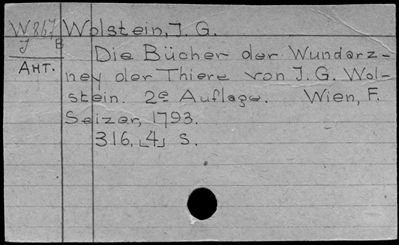 W867 Wolstein, J. G.
J B
Die Bücher der Wundarz-
AHT.
ney der Thiere von J. G. Wol-
stein. 2e Auflage. Wien, F.
Seizer, 1793.
316, ⌊4⌋ S.